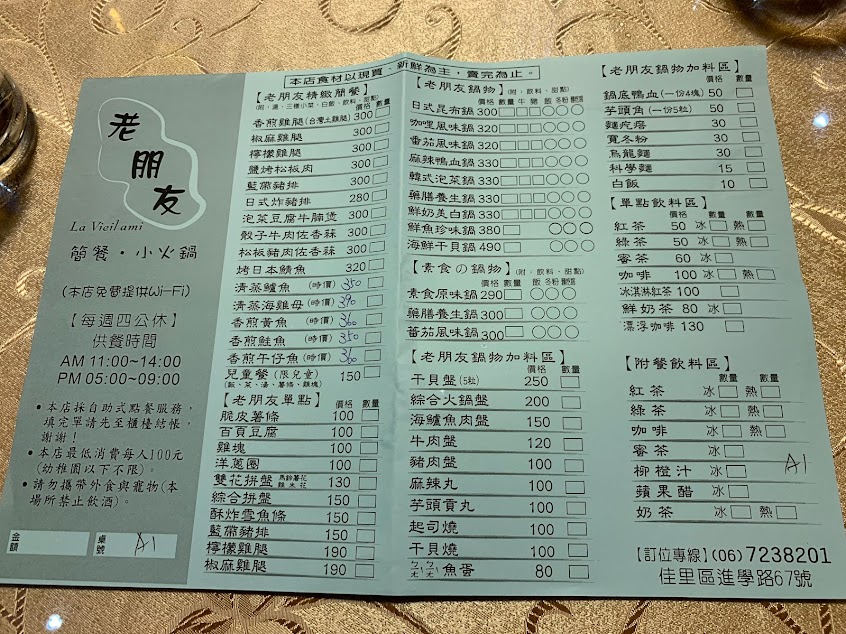 本店食材以現買、新鮮為主，賣完為止。
老朋友
La Vieil ami
簡餐・小火鍋
(本店免費提供Wi-Fi)
【每週四公休】
供餐時間
AM 11:00~14:00
PM 05:00~09:00
•本店採自助式點餐服務，
填完單請先至櫃檯結帳，
謝謝！
•本店最低消費每人100元
(幼稚園以下不限)。
•請勿攜帶外食與寵物(本
場所禁止飲酒)。
金額 桌號 A1
【老朋友精緻簡餐】
(附：湯、三樣小菜、白飯、飲料、甜點)
價格 數量
香煎雞腿(台灣土雞腿) 300
椒麻雞腿 300
檸檬雞腿 300
鹽烤松板肉 300
藍帶豬排 300
日式炸豬排 280
泡菜豆腐牛腩煲 300
骰子牛肉佐香蒜 300
松板豬肉佐香蒜 300
烤日本鯖魚 320
清蒸鱸魚 (時價) 350
清蒸海雞母 (時價) 390
香煎黃魚 (時價) 360
香煎鮭魚 (時價) 350
香煎午仔魚 (時價) 360
兒童餐(限兒童) 150
(飯、菜、湯、薯條、雞塊)
【老朋友單點】
價格 數量
脆皮薯條 100
百頁豆腐 100
雞塊 100
洋蔥圈 100
雙花拼盤 130
綜合拼盤 150
酥炸雪魚條 150
藍帶豬排 150
檸檬雞腿 190
椒麻雞腿 190
【老朋友鍋物】(附：飲料、甜點)
價格 數量 牛 豬 飯 冬粉
日式昆布鍋 300
咖哩風味鍋 320
番茄風味鍋 320
麻辣鴨血鍋 330
韓式泡菜鍋 330
藥膳養生鍋 330
鮮奶美白鍋 330
鮮魚風味鍋 380
海鮮干貝鍋 490
【素食の鍋物】(附：飲料、甜點)
價格 數量 飯 冬粉
素食原味鍋 290
藥膳養生鍋 300
番茄風味鍋 300
【老朋友鍋物加料區】
價格 數量
干貝盤(5粒) 250
綜合火鍋盤 200
海鱸魚肉盤 150
牛肉盤 120
豬肉盤 100
麻辣丸 100
芋頭貢丸 100
起司燒 100
干貝燒 100
ㄅㄞㄅㄞ魚蛋 80
【老朋友鍋物加料區】
價格 數量
鍋底鴨血(一份4塊) 50
芋頭角(一份5粒) 50
麵疙瘩 30
寬冬粉 30
烏龍麵 30
科學麵 15
白飯 10
【單點飲料區】
價格 數量 數量
紅茶 50 冰 熱
綠茶 50 冰 熱
蜜茶 60 冰
咖啡 100 冰 熱
冰淇淋紅茶 100
鮮奶茶 80 冰
漂浮咖啡 130
【附餐飲料區】
數量 數量
紅茶 冰 熱
綠茶 冰 熱
咖啡 冰 熱
蜜茶 冰
柳橙汁 冰
A1
蘋果醋 冰
奶茶 冰 熱
【訂位專線】(06)7238201
佳里區進學路67號